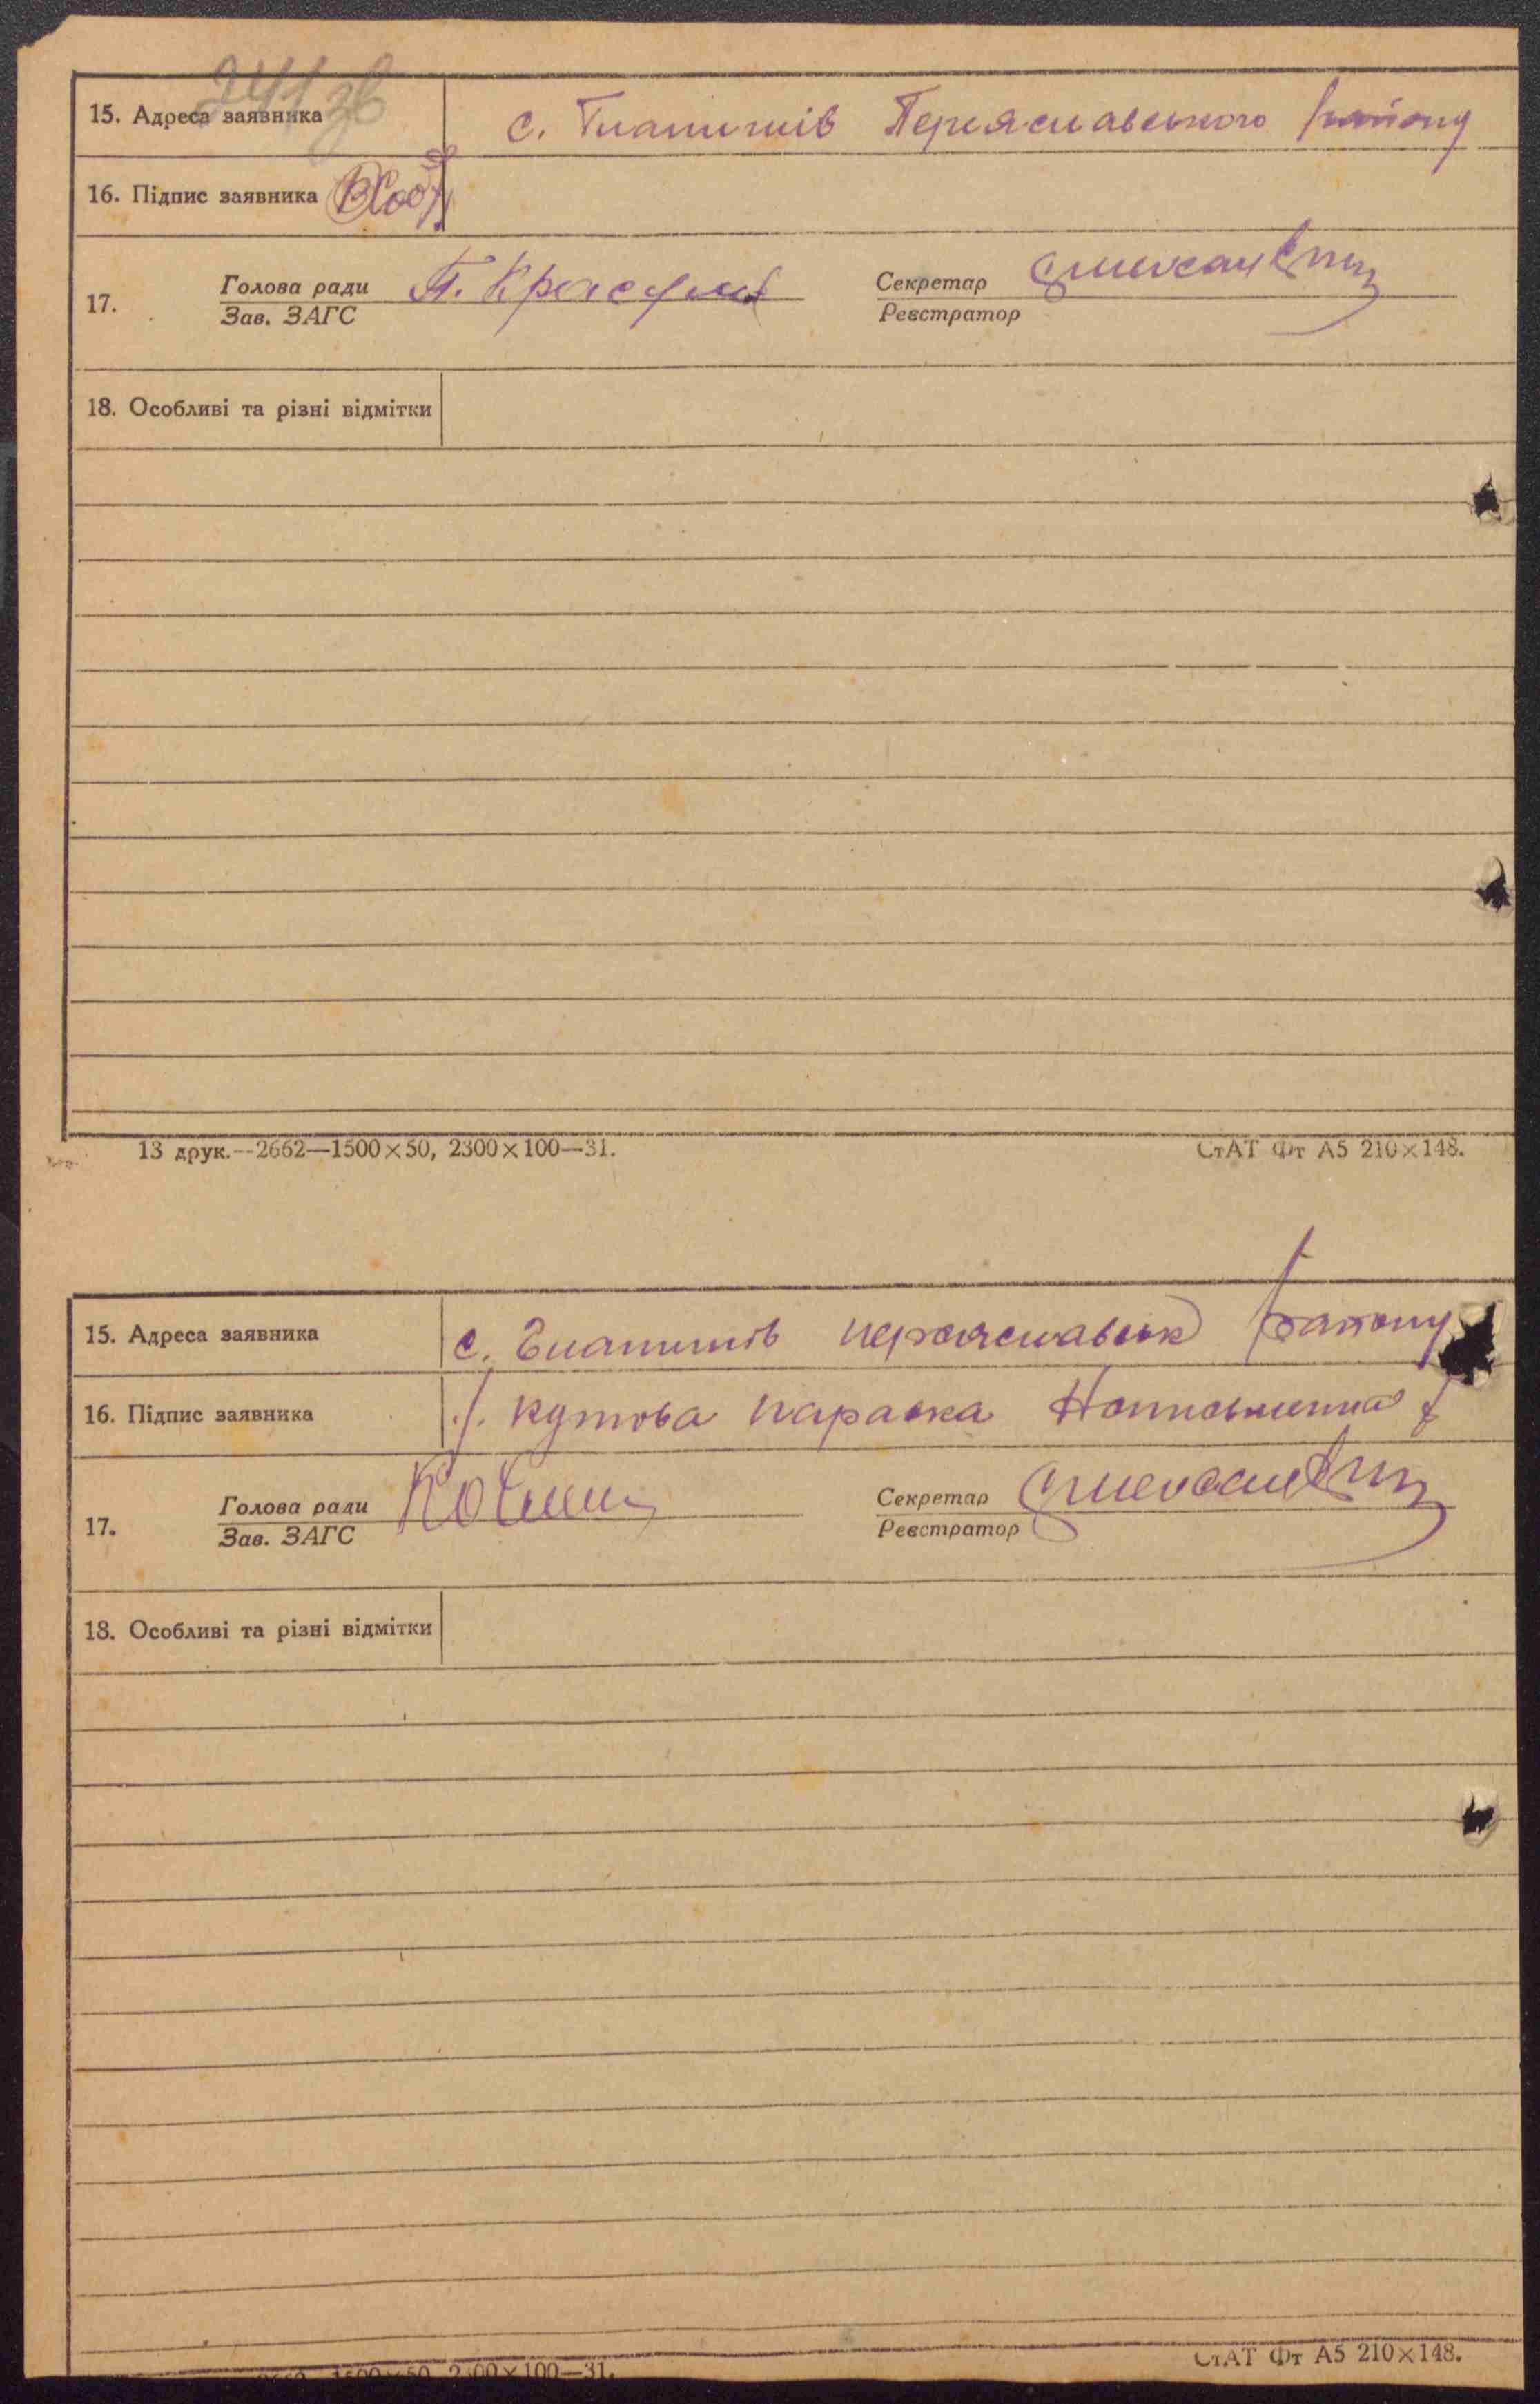 241 зв
15. Адреса заявника с. Гланишів Переяславського району
16. Підпис заявника
17. Голова ради П. Секретар
Зав. ЗАГС Реєстратор
18. Особливі та різні відмітки
13 друк.—2662—1500×50, 2300×100—31. СтАТ Фт А5 210×148.
15. Адреса заявника с. Гланишів Переяславськ району
16. Підпис заявника Кутова Параска
17. Голова ради Секретар
Зав. ЗАГС Реєстратор
18. Особливі та різні відмітки
2662—1500×50, 2300×100—31. СтАТ Фт А5 210×148.